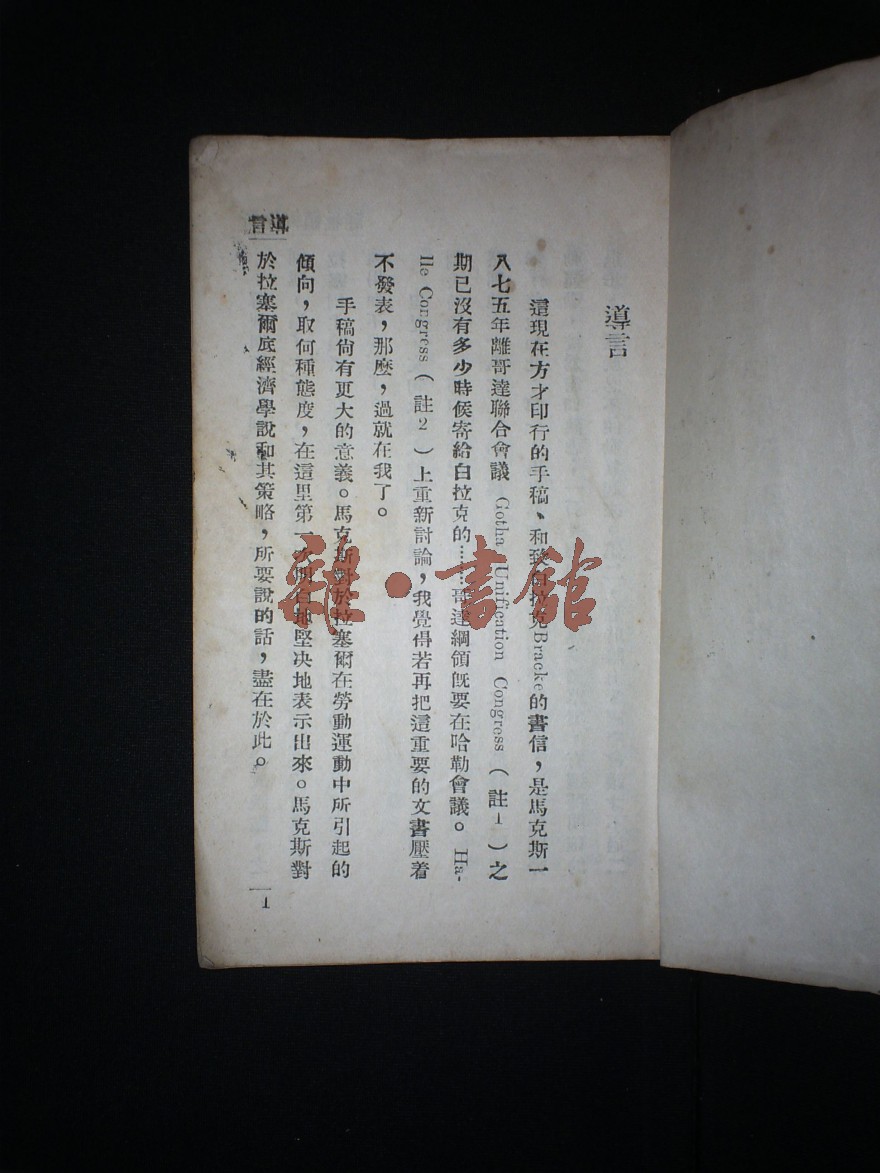 導言
這現在方才印行的手稿、和致白拉克Bracke的書信，是馬克斯一
八七五年離哥達聯合會議 Gotha Unification Congress（註1）之
期已沒有多少時候寄給白拉克的……哥達綱領旣要在哈勒會議。Ha-
lle Congress（註2）上重新討論，我覺得若再把這重要的文書壓着
不發表，那麽，過就在我了。
手稿尙有更大的意義。馬克斯對於拉塞爾在勞動運動中所引起的
傾向，取何種態度，在這里第一次明白地堅决地表示出來。馬克斯對
於拉塞爾底經濟學說和其策略，所要說的話，盡在於此。
導言
1
雜·書館